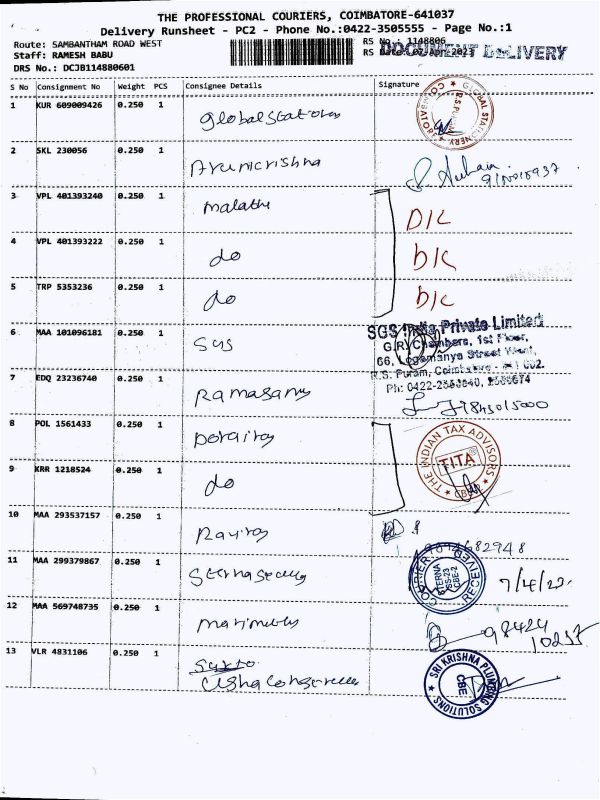 THE PROFESSIONAL COURIERS, COIMBATORE-641037
Delivery Runsheet - PC2 - Phone No.:0422-3505555 - Page No.:1
Route: SAMBANTHAM ROAD WEST
RS No.: 1148806
Staff: RAMESH BABU
RS Date: 07-Apr-2023
DOCUMENT DELIVERY
DRS No.: DCJB114880601
S No Consignment No Weight PCS Consignee Details Signature
1 KUR 609009426 0.250 1 Global Stationers
GLOBAL STATIONERY COIMBATORE R.S. PURAM
2 SKL 230056 0.250 1 Arunkrishna
3 VPL 401393240 0.250 1 Malathi D/L
4 VPL 401393222 0.250 1 do D/L
5 TRP 5353236 0.250 1 do D/L
6 MAA 101096181 0.250 1 SGS
SGS India Private Limited
G.R. Chambers, 1st Floor,
66, Logamanya Street West,
R.S. Puram, Coimbatore - 641 002.
Ph: 0422-
7 EDQ 23236740 0.250 1 Ramasamy
8 POL 1561433 0.250 1 Dorairaj
THE INDIAN TAX ADVISORS TITA
9 KRR 1218524 0.250 1 do
10 MAA 293537157 0.250 1 Raviraj
11 MAA 299379867 0.250 1 Sterna Security
COURIER RECEIVED STERNA CBE-2
7/4/23
12 MAA 569748735 0.250 1 Marimuthu
98424
10257
13 VLR 4831106 0.250 1
Usha
SRI KRISHNA PLUMBING SOLUTIONS CBE